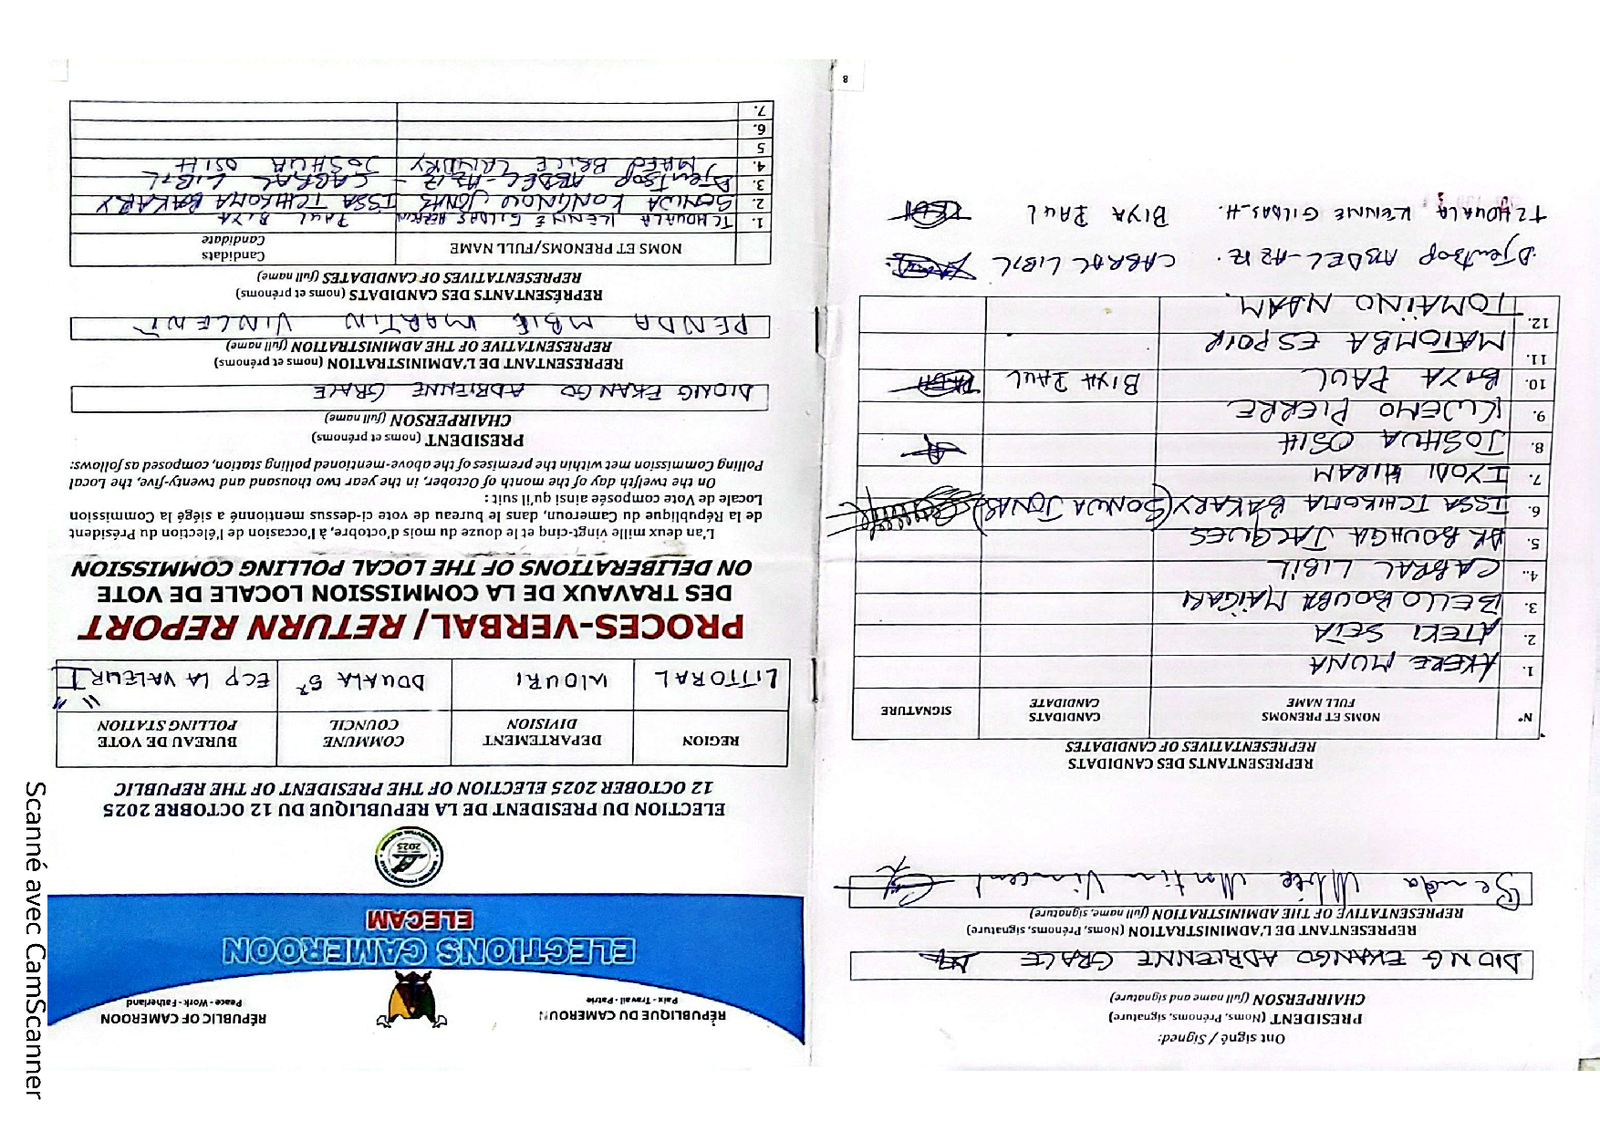 RÉPUBLIQUE DU CAMEROUN
Paix - Travail - Patrie
RÉPUBLIC OF CAMEROON
Peace - Work - Fatherland
ELECTIONS CAMEROON
ELECAM
2025
ELECTION DU PRESIDENT DE LA REPUBLIQUE DU 12 OCTOBRE 2025
12 OCTOBER 2025 ELECTION OF THE PRESIDENT OF THE REPUBLIC
REGION
DEPARTEMENT
DIVISION
COMMUNE
COUNCIL
BUREAU DE VOTE
POLLING STATION
LITTORAL
WOURI
DOUALA 5e
ECP LA VALEUR "I"
PROCES-VERBAL/ RETURN REPORT
DES TRAVAUX DE LA COMMISSION LOCALE DE VOTE
ON DELIBERATIONS OF THE LOCAL POLLING COMMISSION
L'an deux mille vingt-cinq et le douze du mois d'octobre, à l'occasion de l'élection du Président
de la République du Cameroun, dans le bureau de vote ci-dessus mentionné a siégé la Commission
Locale de Vote composée ainsi qu'il suit :
On the twelfth day of the month of October, in the year two thousand and twenty-five, the Local
Polling Commission met within the premises of the above-mentioned polling station, composed as follows:
PRESIDENT (noms et prénoms)
CHAIRPERSON (full name)
DIONG EKANGO ADRIENNE GRACE
REPRESENTANT DE L'ADMINISTRATION (noms et prénoms)
REPRESENTATIVE OF THE ADMINISTRATION (full name)
PENDA MBIE MARTIN VINCENT
REPRÉSENTANTS DES CANDIDATS (noms et prénoms)
REPRESENTATIVES OF CANDIDATES (full name)
NOMS ET PRENOMS/FULL NAME
Candidats
Candidate
1. TCHOUALA KENNE GILDAS HERMIN PAUL BIYA
2. SONWA KONGNOU JONAS ISSA TCHIROMA BAKARY
3. Djentsop ABDEL-AZIZ - CABRAL LIBIL
4. MAFO BRICE LANDRY JOSHUA OSIH
5
6.
7.
8
Ont signé / Signed:
PRESIDENT (Noms, Prénoms, signature)
CHAIRPERSON (full name and signature)
DIONG EKANGO ADRIENNE GRACE
REPRESENTANT DE L'ADMINISTRATION (Noms, Prénoms, signature)
REPRESENTATIVE OF THE ADMINISTRATION (full name, signature)
Penda Mbie Martin Vincent
REPRESENTANTS DES CANDIDATS
REPRESENTATIVES OF CANDIDATES
N°
NOMS ET PRENOMS
FULL NAME
CANDIDATS
CANDIDATE
SIGNATURE
1. AKERE MUNA
2. ATEKI SETA
3. BELLO BOUBA MAÏGARI
4.. CABRAL LIBIL
5. DR BOUHGA JACQUES
6. ISSA TCHIROMA BAKARY (SONWA JONAS)
7. IYODI HIRAM
8. JOSHUA OSIH
9. KWEMO PIERRE
10. BIYA PAUL BIYA PAUL
11. MATOMBA ESPOIR
12. TOMAÏNO NDAM.
Djentsop ABDEL-AZIZ. CABRAL LIBIL
TCHOUALA KENNE GILDAS-H. BIYA PAUL
Scanné avec CamScanner